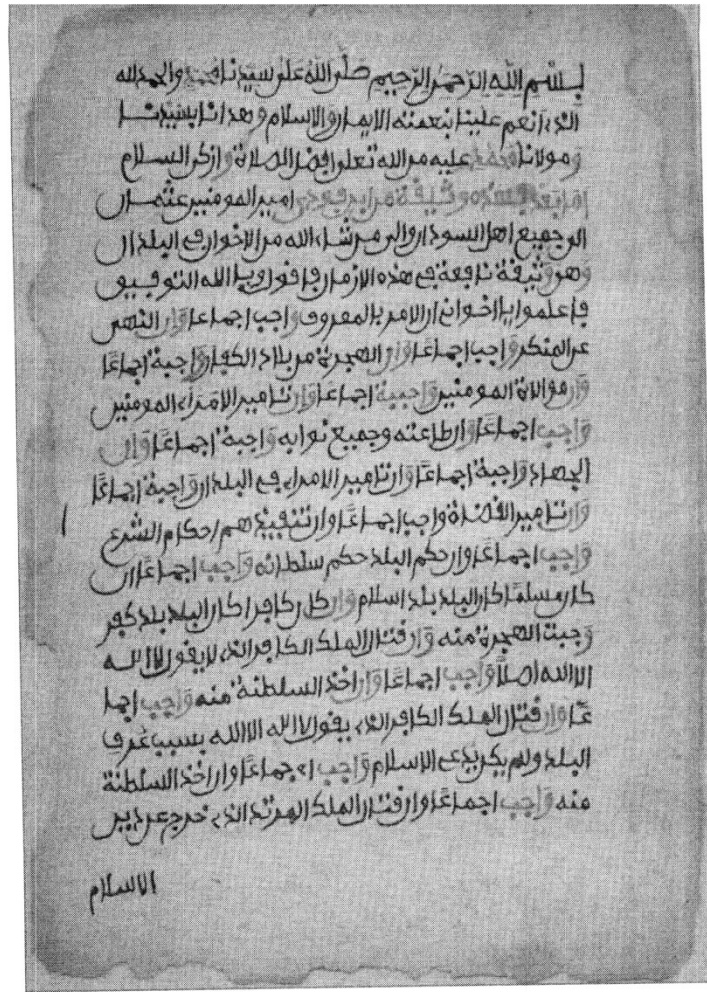 بسم الله الرحمن الرحيم صلى الله على سيدنا محمد والحمد لله
الذي انعم علينا بنعمته الايمان والاسلام وهدانا بسيدنا
ومولانا محمد عليه من الله تعلى افضل الصلاة وازكى السلام
اما بعد فهذه وثيقة من ابن فودي امير المومنين عثمان
الى جميع اهل السودان والى من شاء الله من الاخوان في البلدان
وهو وثيقة نافعة في هذه الازمان فاقول وبا الله التوفيق
فاعلموا يا اخواني ان الامر بالمعروف واجب اجماعا وان النهي
عن المنكر واجب اجماعا وان الهجرة من بلاد الكفار واجبة اجماعا
وان موالاة المومنين واجبة اجماعا وان تامير الامراء المومنين
واجب اجماعا وان طاعته وجميع نوابه واجبة اجماعا وان
الجهاد واجبة اجماعا وان تامير الامراء في البلدان واجبة اجماعا
وان تامير القضاة واجب اجماعا وان تنفيذهم احكام الشرع
واجب اجماعا وان حكم البلد حكم سلطانه واجب اجماعا ان
كان مسلما كان البلد بلد اسلام وان كل كافرا كان البلد بلد كفر
وجبت الهجرة منه وان قتال الملك الكافر الذي لا يقول لا اله
الا الله اصلا واجب اجماعا وان اخذ السلطنة منه واجب اجما
عا وان قتال الملك الكافر الذي يقول لا اله الا الله بسبب عرف
البلد ولم يكن يدعي الاسلام واجب اجماعا وان اخذ السلطنة
منه واجب اجماعا وان قتال الملك المرتد الذي خرج عن دين
الاسلام